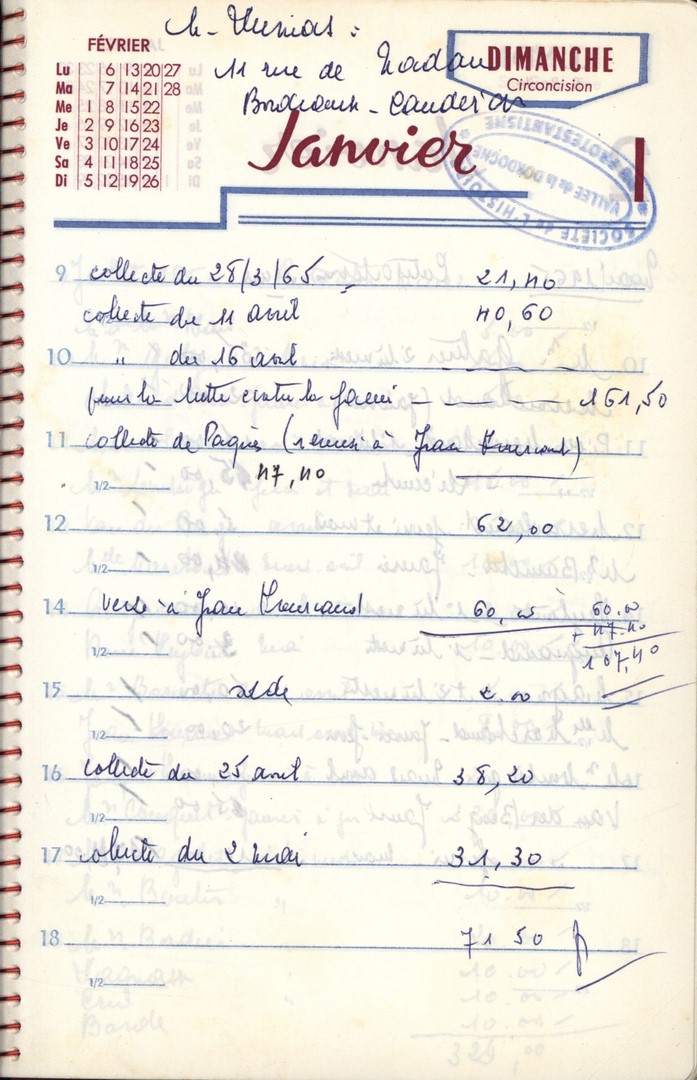 FÉVRIER
Lu 6 13 20 27
Ma 7 14 21 28
Me 1 8 15 22
Je 2 9 16 23
Ve 3 10 17 24
Sa 4 11 18 25
Di 5 12 19 26
11 rue de
Bordeaux - Caudéran
DIMANCHE
Circoncision
Janvier 1
SOCIETE de L'HISTOIRE du PROTESTANTISME
VALLEE de la DORDOGNE
9 collecte du 28/3/65 21,40
collecte du 11 avril 40,60
10 " du 16 avril
pour la lutte contre la faim 161,50
11 collecte de Pâques (remise à Jean)
47,40
1/2
12 62,00
1/2
14 versé à Jean 60,00 60.00
+ 47.40
1/2 107,40
15 solde 2.00
1/2
16 collecte du 25 avril 38,20
1/2
17 collecte du 2 mai 31,30
1/2
18 71 50
1/2